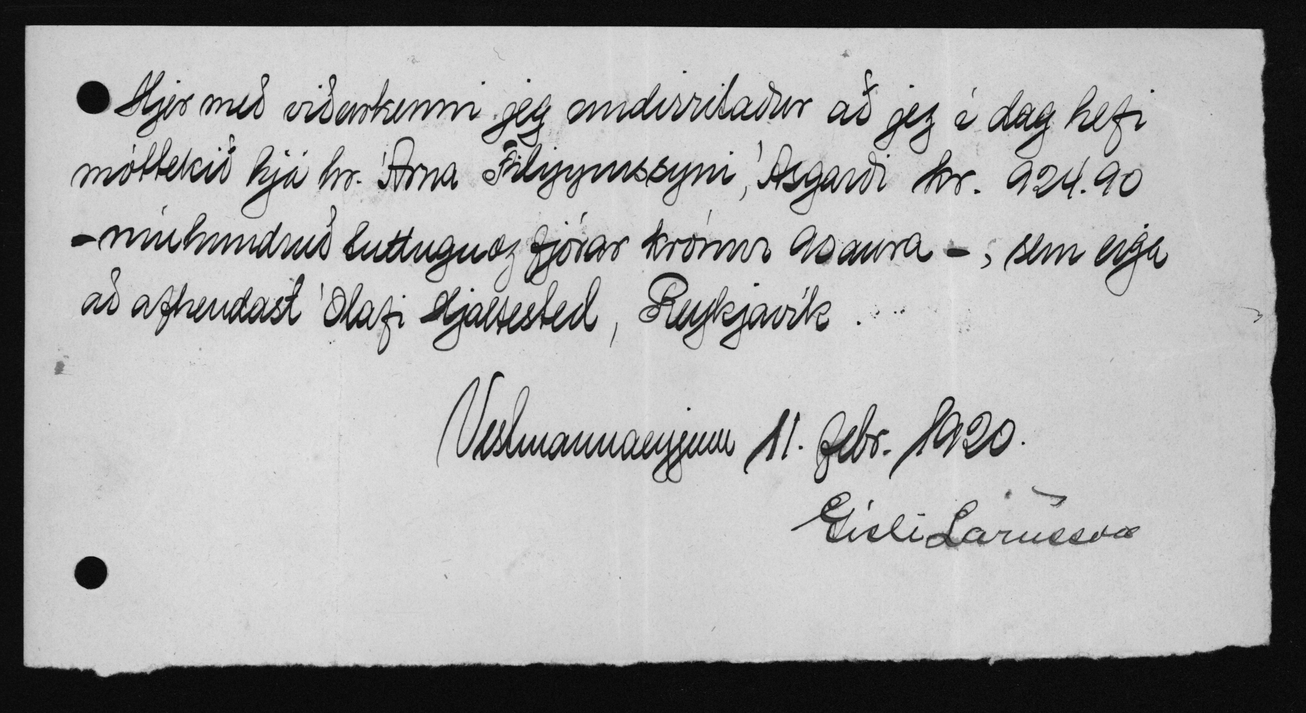 Hjer með viðurkenni jeg undirritaður að jeg í dag hefi
móttekið hjá hr. Árna Filippussyni, Ásgarði kr. 924.90
- níuhundruð tuttugu og fjórar krónur 90 aura -, sem eiga
að afhendast Ólafi Hjaltested, Reykjavík.
Vestmannaeyjum 11. febr. 1920.
Gísli Lárusson